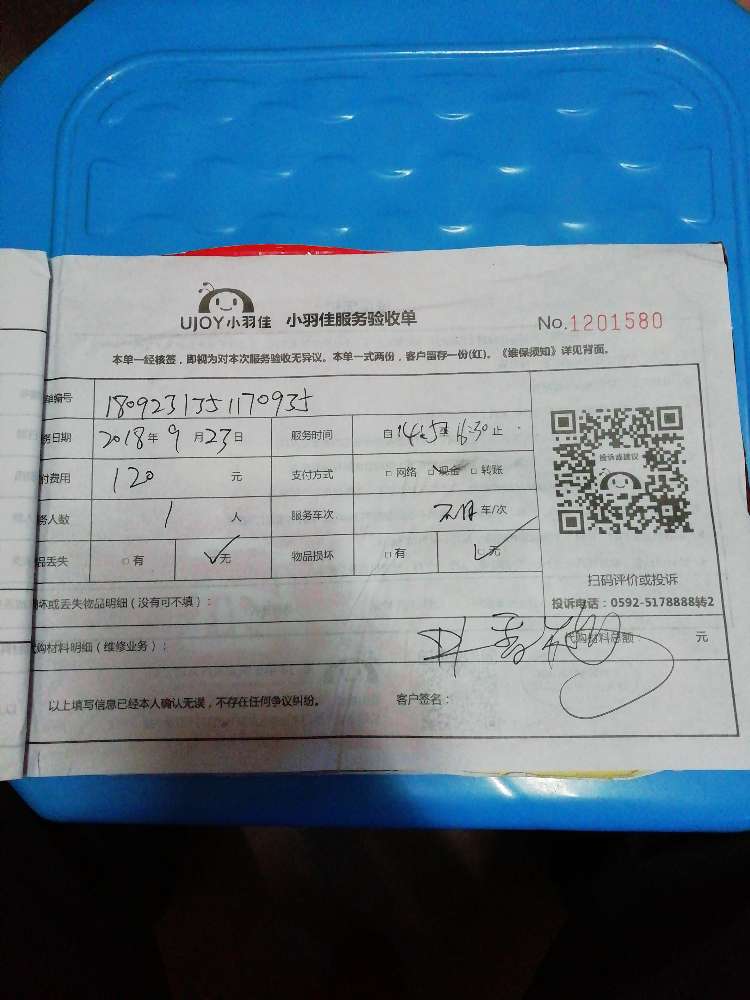 UJOY小羽佳 小羽佳服务验收单 No.1201580
本单一经核签，即视为对本次服务验收无异议。本单一式两份，客户留存一份(红)。《维保须知》详见背面。
单编号 1809231351170935
务日期 2018年9月23日 服务时间 自 至16:30止
付费用 120元 支付方式 □网络 □现金 □转账
务人数 1人 服务车次 车/次
品丢失 □有 □无 物品损坏 □有 □无
投诉或建议
扫码评价或投诉
投诉电话：0592-5178888转2
坏或丢失物品明细（没有可不填）：
购材料明细（维修业务）： 代购材料总额 元
以上填写信息已经本人确认无误，不存在任何争议纠纷。 客户签名：